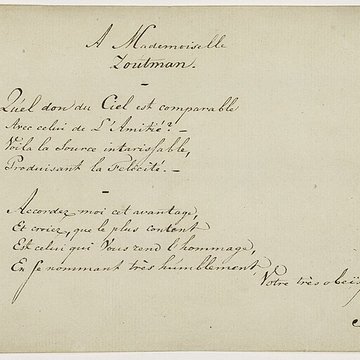 A Mademoiselle
Zoutman.
Quel don du Ciel est comparable
Avec celui de L'Amitié? –
Voila la Source intarissable,
Produisant la Félocité. –
Accordez moi cet avantage,
Et croiez, que le plus content
Est celui qui Vous rend l'hommage,
En se nommant très humblement,
Votre très obeïs